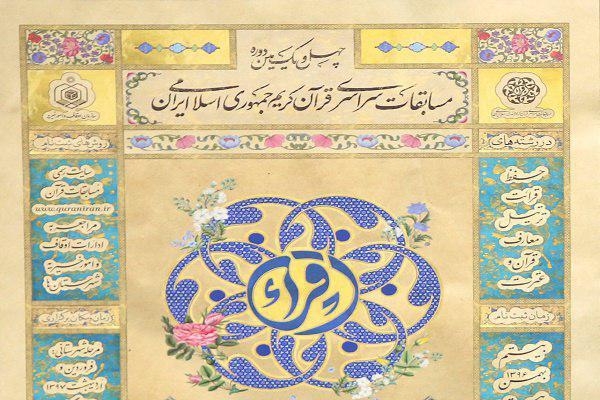 چهل و یکمین دوره
مسابقات سراسری قرآن کریم جمهوری اسلامی ایران
سازمان اوقاف و امور خیریه
در رشته‌های:
حفظ
قرائت
ترتیل
معارف
قرآن و
عترت
زمان ثبت نام:
بیستم
بهمن
۱۳۹۶
روش‌های ثبت نام:
سایت رسمی
مسابقات قرآن
www.quraniran.ir
مراجعه به
ادارات اوقاف
و امور خیریه
شهرستان‌ها
زمان و مکان برگزاری:
مرحله شهرستانی:
فروردین و
اردیبهشت ۱۳۹۷
اقراء